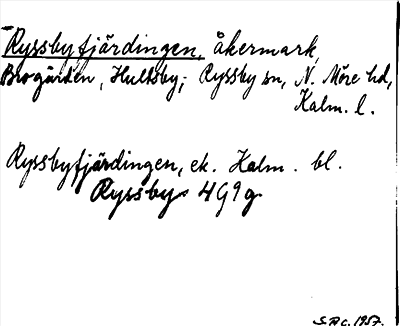 Ryssbyfjärdingen, åkermark,
Brogården, Hultsby; Ryssby sn, N. Möre hd,
Kalm. l.
Ryssbyfjärdingen, ek. Kalm. bl.
Ryssby 4G9g
S.A.C. 1957.